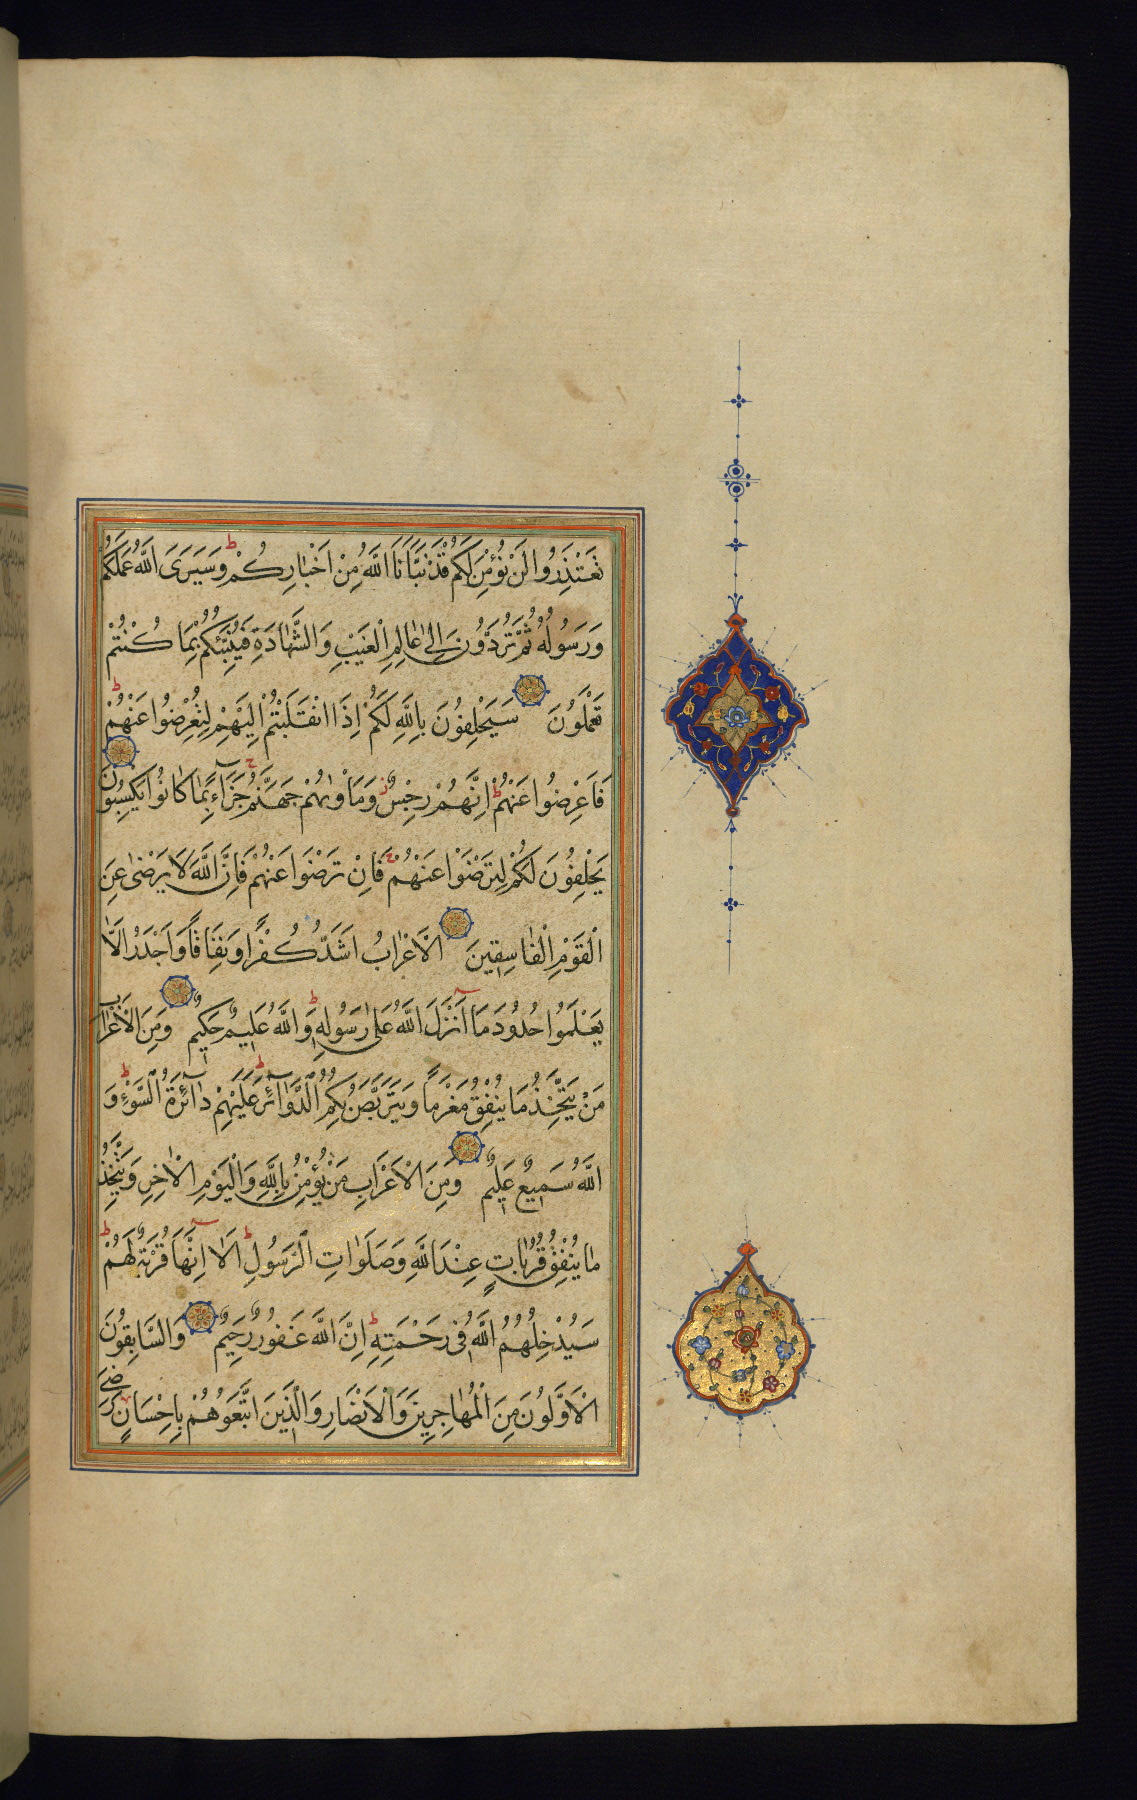 تَعْتَذِرُوا لَنْ نُؤْمِنَ لَكُمْ قَدْ نَبَّأَنَا اللَّهُ مِنْ اَخْبَارِكُمْ ط وَسَيَرَى اللَّهُ عَمَلَكُمْ
وَرَسُولُهُ ثُمَّ تُرَدُّونَ اِلٰى عَالِمِ الْغَيْبِ وَالشَّهَادَةِ فَيُنَبِّئُكُمْ بِمَا كُنْتُمْ
تَعْمَلُونَ سَيَحْلِفُونَ بِاللَّهِ لَكُمْ اِذَا انْقَلَبْتُمْ اِلَيْهِمْ لِتُعْرِضُوا عَنْهُمْ ط
فَاَعْرِضُوا عَنْهُمْ ط اِنَّهُمْ رِجْسٌ ز وَمَاْوٰيهُمْ جَهَنَّمُ ج جَزَاۤءً بِمَا كَانُوا يَكْسِبُونَ
يَحْلِفُونَ لَكُمْ لِتَرْضَوْا عَنْهُمْ ج فَاِنْ تَرْضَوْا عَنْهُمْ فَاِنَّ اللَّهَ لَا يَرْضٰى عَنِ
الْقَوْمِ الْفَاسِقِينَ اَلْاَعْرَابُ اَشَدُّ كُفْرًا وَنِفَاقًا وَاَجْدَرُ اَلَّا
يَعْلَمُوا حُدُودَ مَاۤ اَنْزَلَ اللَّهُ عَلٰى رَسُولِهِ ط وَاللَّهُ عَلِيمٌ حَكِيمٌ وَمِنَ الْاَعْرَابِ
مَنْ يَتَّخِذُ مَا يُنْفِقُ مَغْرَمًا وَيَتَرَبَّصُ بِكُمُ الدَّوَاۤئِرَ ط عَلَيْهِمْ دَاۤئِرَةُ السَّوْءِ ط وَ
اللَّهُ سَمِيعٌ عَلِيمٌ وَمِنَ الْاَعْرَابِ مَنْ يُؤْمِنُ بِاللَّهِ وَالْيَوْمِ الْاٰخِرِ وَيَتَّخِذُ
مَا يُنْفِقُ قُرُبَاتٍ عِنْدَ اللَّهِ وَصَلَوَاتِ الرَّسُولِ ط اَلَاۤ اِنَّهَا قُرْبَةٌ لَهُمْ ط
سَيُدْخِلُهُمُ اللَّهُ فِى رَحْمَتِهِ ط اِنَّ اللَّهَ غَفُورٌ رَحِيمٌ وَالسَّابِقُونَ
الْاَوَّلُونَ مِنَ الْمُهَاجِرِينَ وَالْاَنْصَارِ وَالَّذِينَ اتَّبَعُوهُمْ بِاِحْسَانٍ رَضِىَ